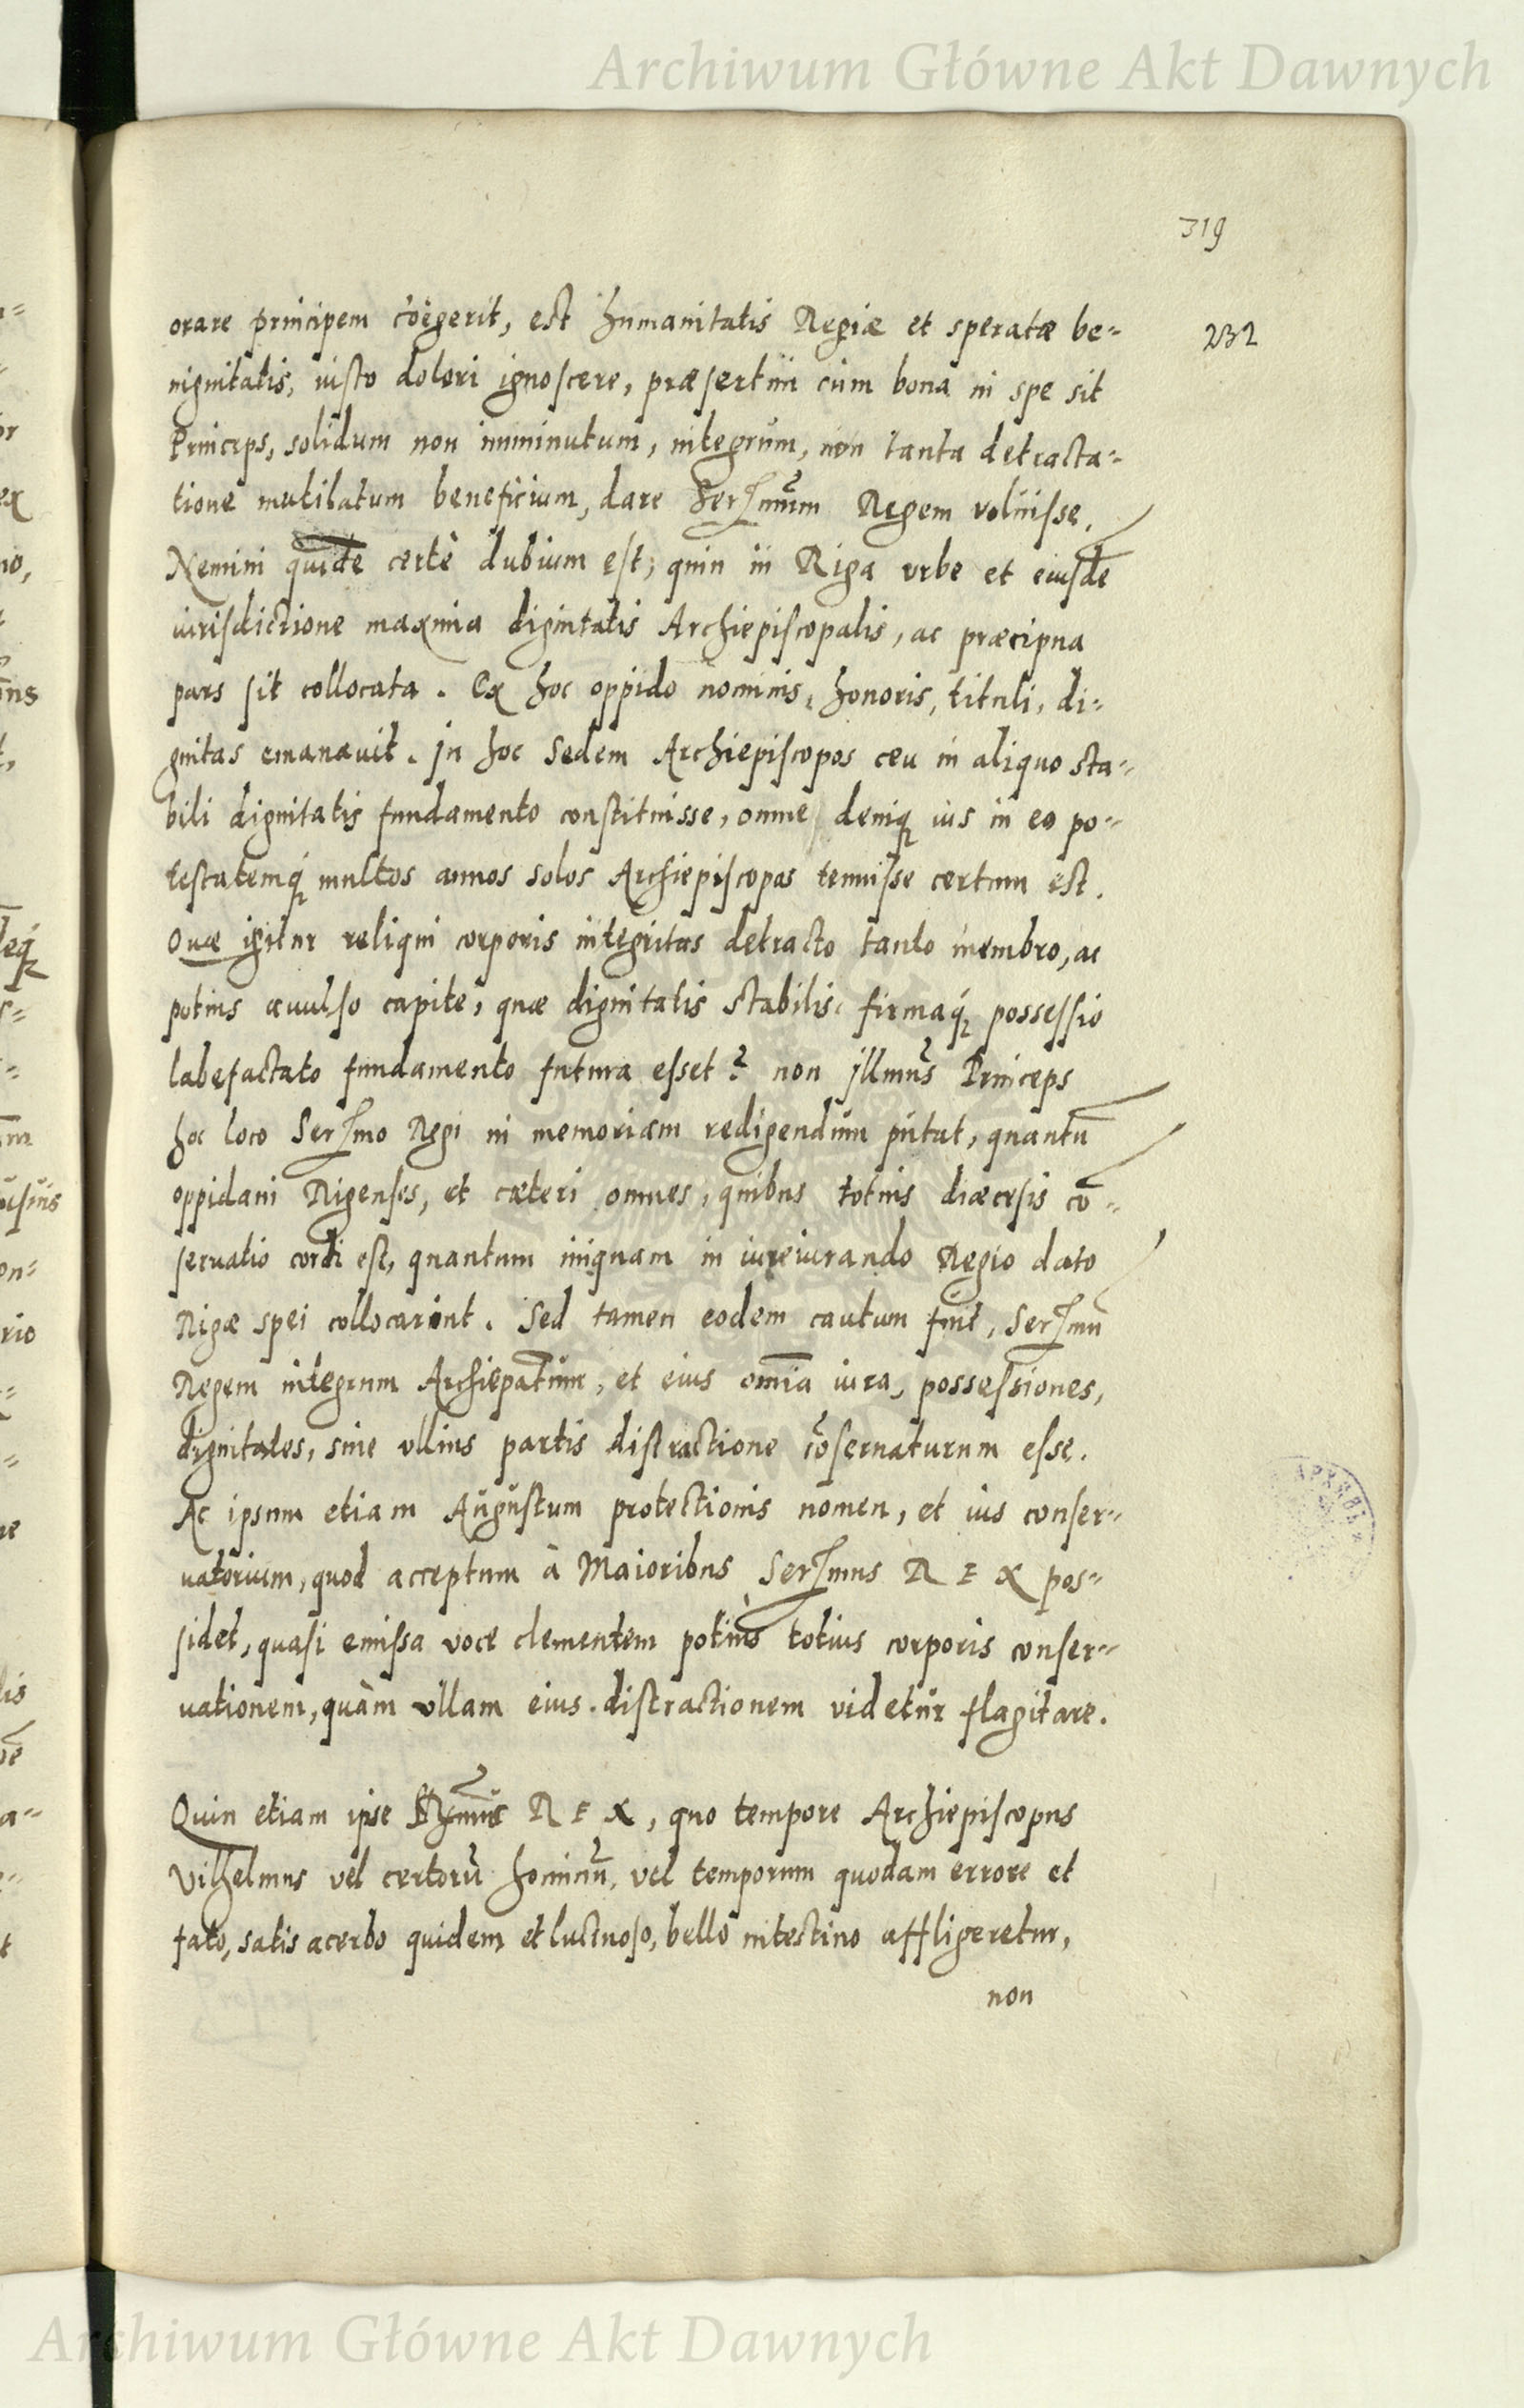 Archiwum Główne Akt Dawnych
319
232
orare principem coëgerit, est humanitatis Regiæ et speratæ be=
nignitatis, iusto dolori ignoscere, præsertim cùm bona in spe sit
Princeps, solidum non imminutum, integrum, non tanta detracta=
tione mutilatum beneficium, dare Serſmũm Regem voluisse.
Nemini quidẽ certè dubium est, quin in Riga vrbe et eiusdẽ
iurisdictione maxima dignitatis Archiepiscopalis, ac præcipua
pars sit collocata. Ex hoc oppido nominis, honoris, tituli, di=
gnitas emanauit. In hoc Sedem Archiepiscopos ceu in aliquo sta=
bili dignitatis fundamento constituisse, omne deniq ius in eo po=
testatemq́ multos annos solos Archiepiscopos tenuisse certum est.
Quæ igitur reliqui corporis integritas detracto tanto membro, ac
potius auulso capite, quæ dignitatis stabilis firmaq́ possessio
labefactato fundamento futura esset? non Jllmũs Princeps
hoc loco Serſmo Regi in memoriam redigendum putat, quantũ
oppidani Rigenses, et cæteri omnes, quibus totius diæcesis cõ=
seruatio cordi est, quantum inquam in iureiurando Regio dato
Rigæ spei collocarint. Sed tamen eodem cautum fuit, Serſmũ
Regem integrum Archiepatum, et eius om̃ia iura, possessiones,
dignitates, sine vllius partis distractione cõseruaturum esse.
Ac ipsum etiam Augustum protectionis nomen, et ius conser=
uatorium, quod acceptum à Maioribus Serſmus REX pos=
sidet, quasi emissa voce clementem potiùs totius corporis conser=
uationem, quàm vllam eius distractionem videtur flagitare.
Quin etiam ipse Sermũs REX, quo tempore Archiepiscopus
Vilhelmus vel certorũ hominũ, vel temporum quodam errore et
fato, satis acerbo quidem et luctuoso, bello intestino affligeretur,
non
Archiwum Główne Akt Dawnych